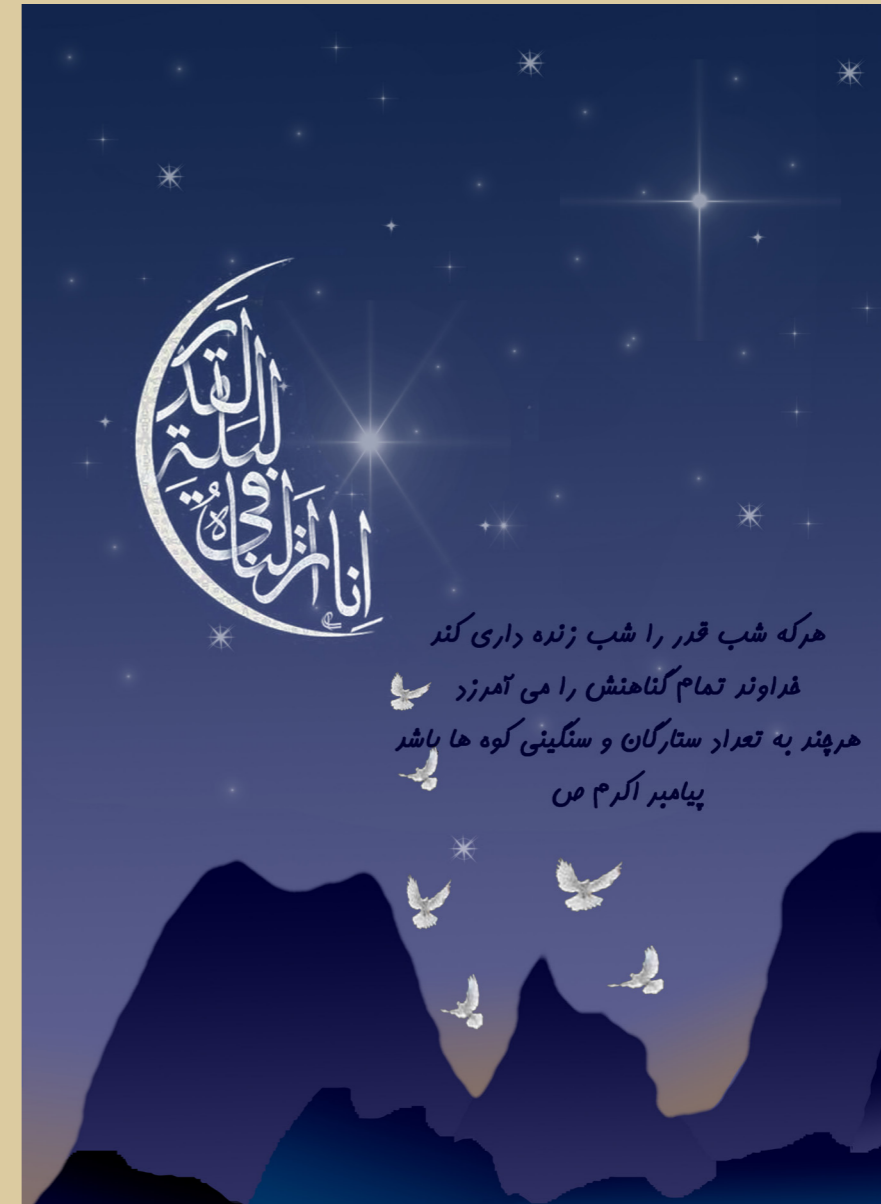 انا انزلناه فی
لیلة القدر
هرکه شب قدر را شب زنده داری کند
خداوند تمام گناهنش را می آمرزد
هرچند به تعداد ستارگان و سنگینی کوه ها باشد
پیامبر اکرم ص